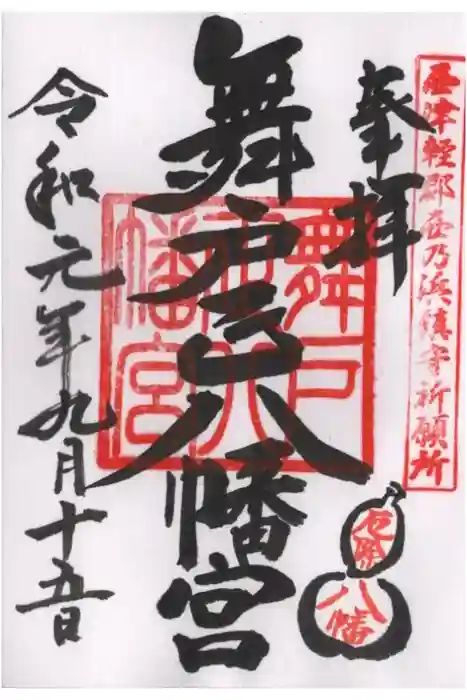 西津軽郡西乃浜鎮守祈願所
奉拝
舞戸正八幡宮
舞戸
正八
幡宮
厄除
八幡
令和元年九月十五日